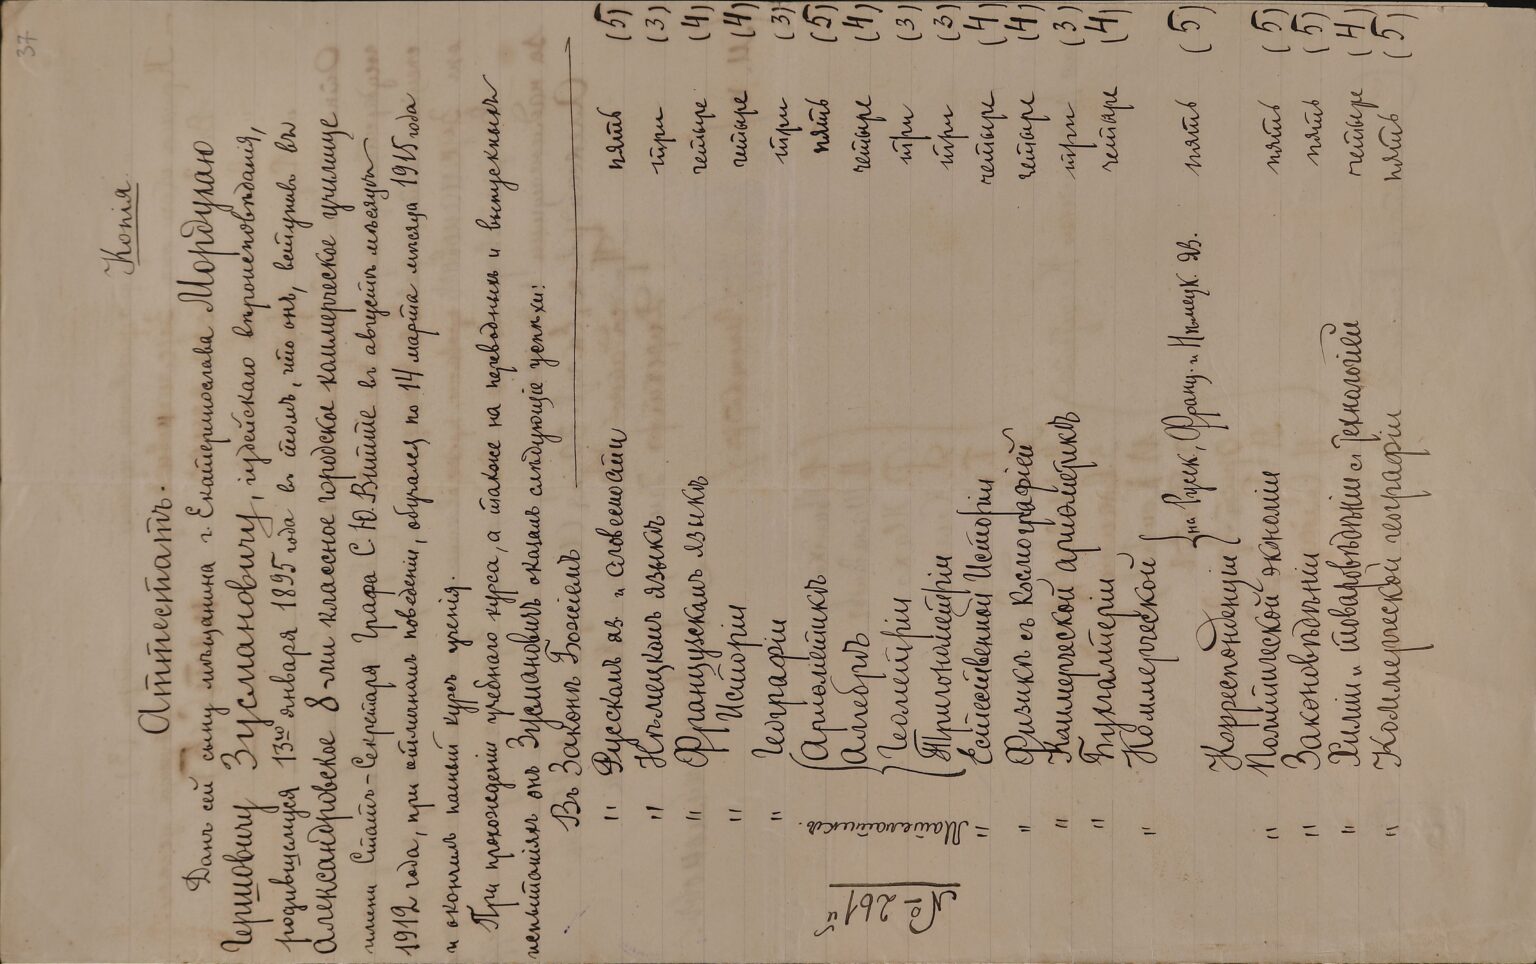 37
Копія
Аттестатъ.
Данъ сей сыну мѣщанина г. Екатеринослава Мордухаю
Гершовичу Зусмановичу, іудейскаго вѣроисповѣданія,
родившемуся 13го января 1895 года въ томъ, что онъ, вступивъ въ
Александровское 8-ми классное городское коммерческое училище
имени Статсъ-Секретаря Графа С. Ю. Витте въ августѣ мѣсяцѣ
1912 года, при отличномъ поведеніи, обучался по 14 марта мѣсяца 1915 года
и окончилъ полный курсъ ученія.
При прохожденіи учебнаго курса, а также на переводныхъ и выпускныхъ
испытаніяхъ онъ Зусмановичъ оказалъ слѣдующіе успѣхи:
Въ Законѣ Божіемъ
" Русскомъ яз. и словесности пять (5)
" Нѣмецкомъ языкѣ три (3)
" Французскомъ языкѣ четыре (4)
" Исторіи четыре (4)
" Географіи три (3)
Математикѣ
Ариѳметикѣ пять (5)
Алгебрѣ четыре (4)
Геометріи три (3)
Тригонометріи три (3)
" Естественной Исторіи четыре (4)
" Физикѣ съ Космографіей четыре (4)
" Коммерческой ариѳметикѣ три (3)
" Бухгалтеріи четыре (4)
" Коммерческой
Корреспонденціи на Русск., Франц. и Нѣмецк. яз. пять (5)
" Политической экономіи пять (5)
" Законовѣдѣніи пять (5)
" Химіи и товаровѣдѣніи съ Технологіей четыре (4)
" Коммерческой географіи пять (5)
№ 261й